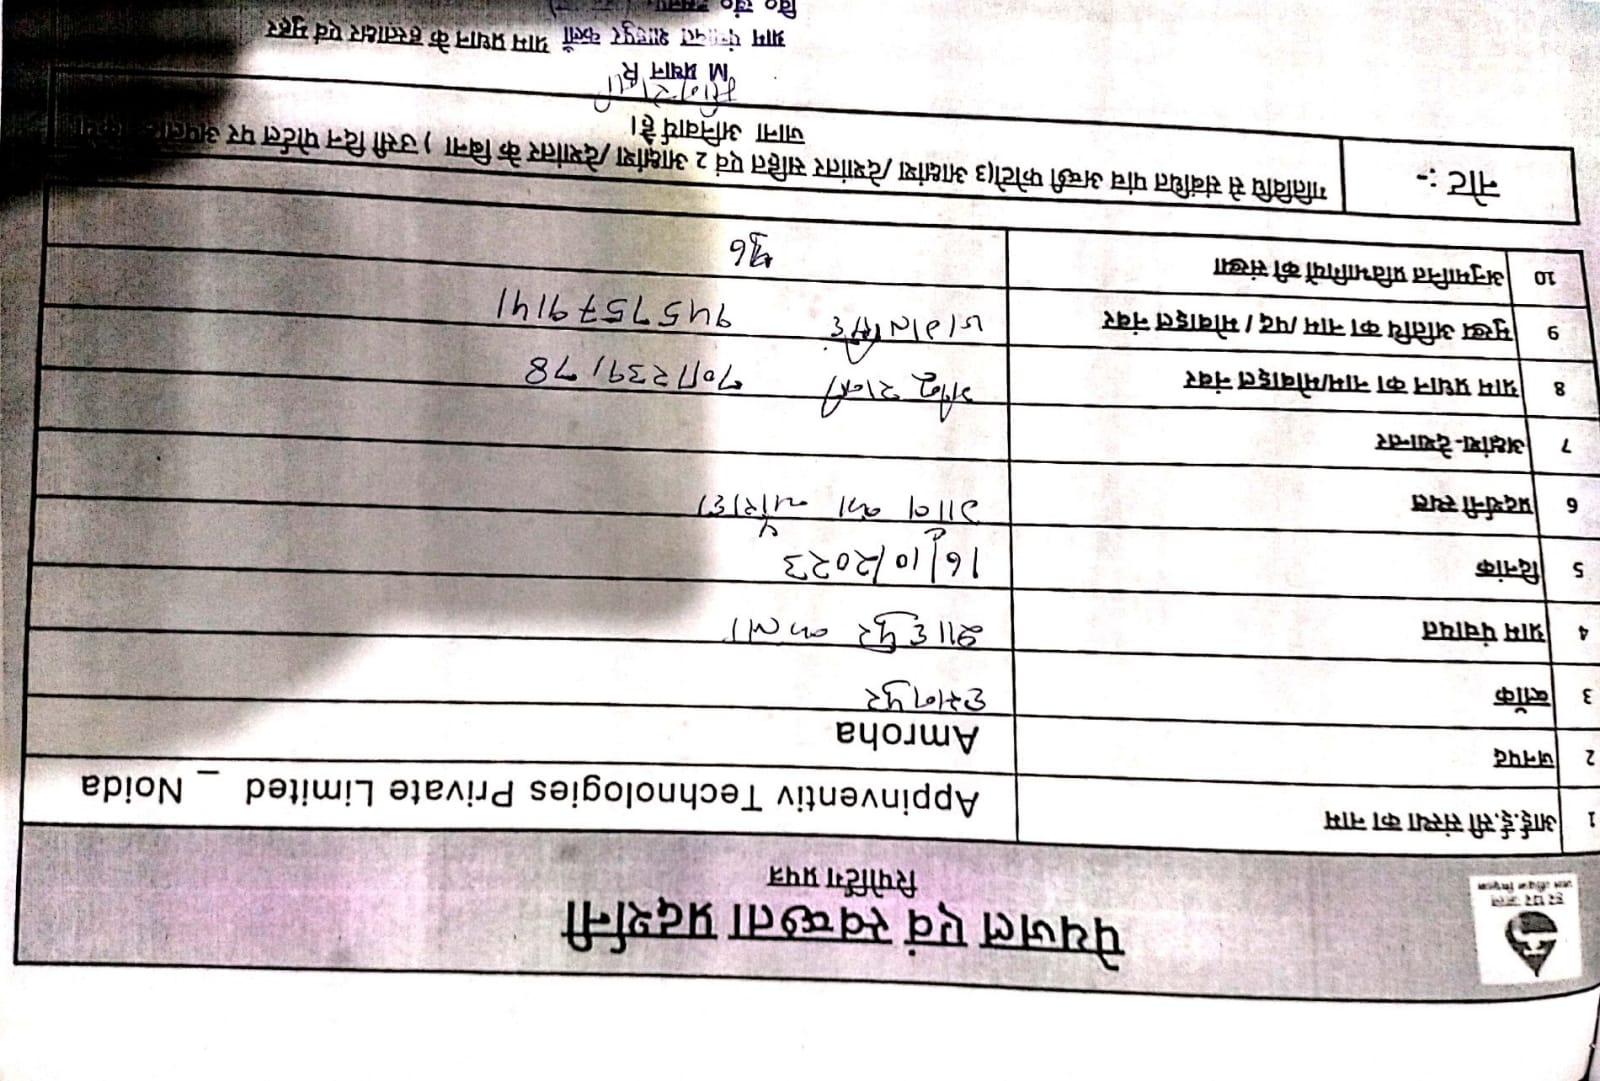 हर घर जल
जल जीवन मिशन
पेयजल एवं स्वच्छता प्रदर्शनी
रिपोर्टिंग प्रपत्र
1 आई.ई.सी संस्था का नाम Appinventiv Technologies Private Limited _ Noida
2 जनपद Amroha
3 ब्लॉक हसनपुर
4 ग्राम पंचायत शाहपुर कलां
5 दिनांक 16/10/2023
6 प्रदर्शनी स्थल
7 अक्षांश-देशान्तर
8 ग्राम प्रधान का नाम/मोबाइल नंबर
9 मुख्य अतिथि का नाम /पद / मोबाइल नंबर 9457579141
10 अनुमानित प्रतिभागियों की संख्या
नोट :- गतिविधि से संबंधित पांच अच्छी फोटो(3 आक्षांश /देशांतर सहित एवं 2 आक्षांश /देशांतर के बिना ) उसी दिन पोर्टल पर
जाना अनिवार्य है।
प्रधान
ग्राम पंचायत शाहपुर कलाँ ग्राम प्रधान के हस्ताक्षर एवं मुहर